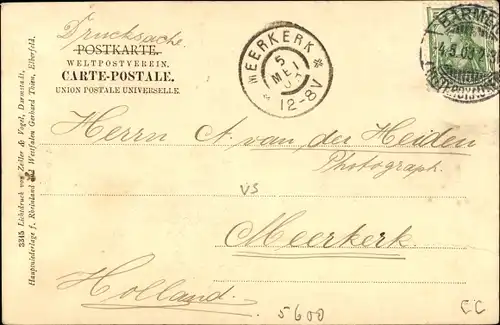 Drucksache.
POSTKARTE.
WELTPOSTVEREIN.
CARTE-POSTALE.
UNION POSTALE UNIVERSELLE.
MEERKERK
5
MEI
12-8V
BARMEN
Herrn A. van der Heiden
Photograph.
VS
Meerkerk.
Holland.
5600
CC
3315 Lichtdruck von Zedler & Vogel, Darmstadt,
Hauptniederlage f. Rheinland und Westfalen Gerhard Thien, Elberfeld.